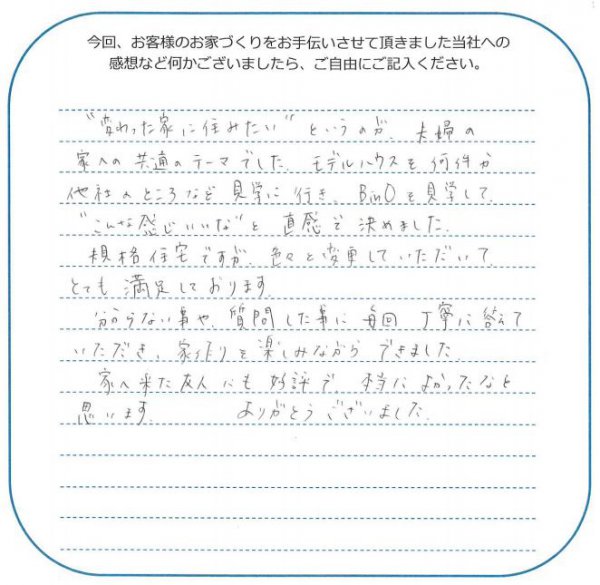 今回、お客様のお家づくりをお手伝いさせて頂きました当社への
感想など何かございましたら、ご自由にご記入ください。
"変わった家に住みたい"というのが、夫婦の
家への共通のテーマでした。モデルハウスを何件か
他社のところなど見学に行き、BinOを見学して、
"こんな感じいいな"と直感で決めました。
規格住宅ですが、色々と変更していただいて、
とても満足しております。
分からない事や、質問した事に毎回丁寧に答えて
いただき、家作りを楽しみながらできました。
家へ来た友人にも好評で、本当によかったなと
思います。 ありがとうございました。